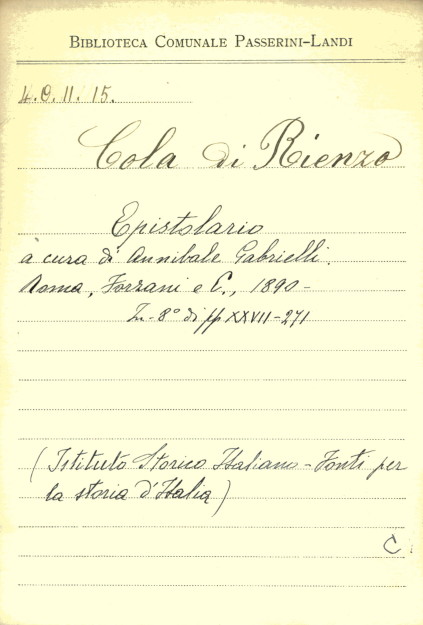 BIBLIOTECA COMUNALE PASSERINI-LANDI
4.O.11.15.
Cola di Rienzo
Epistolario
a cura di Annibale Gabrielli.
Roma, Forzani e C., 1890-
In-8° di pp XXVII-271
(Istituto Storico Italiano-Fonti per
la storia d'Italia)
C.